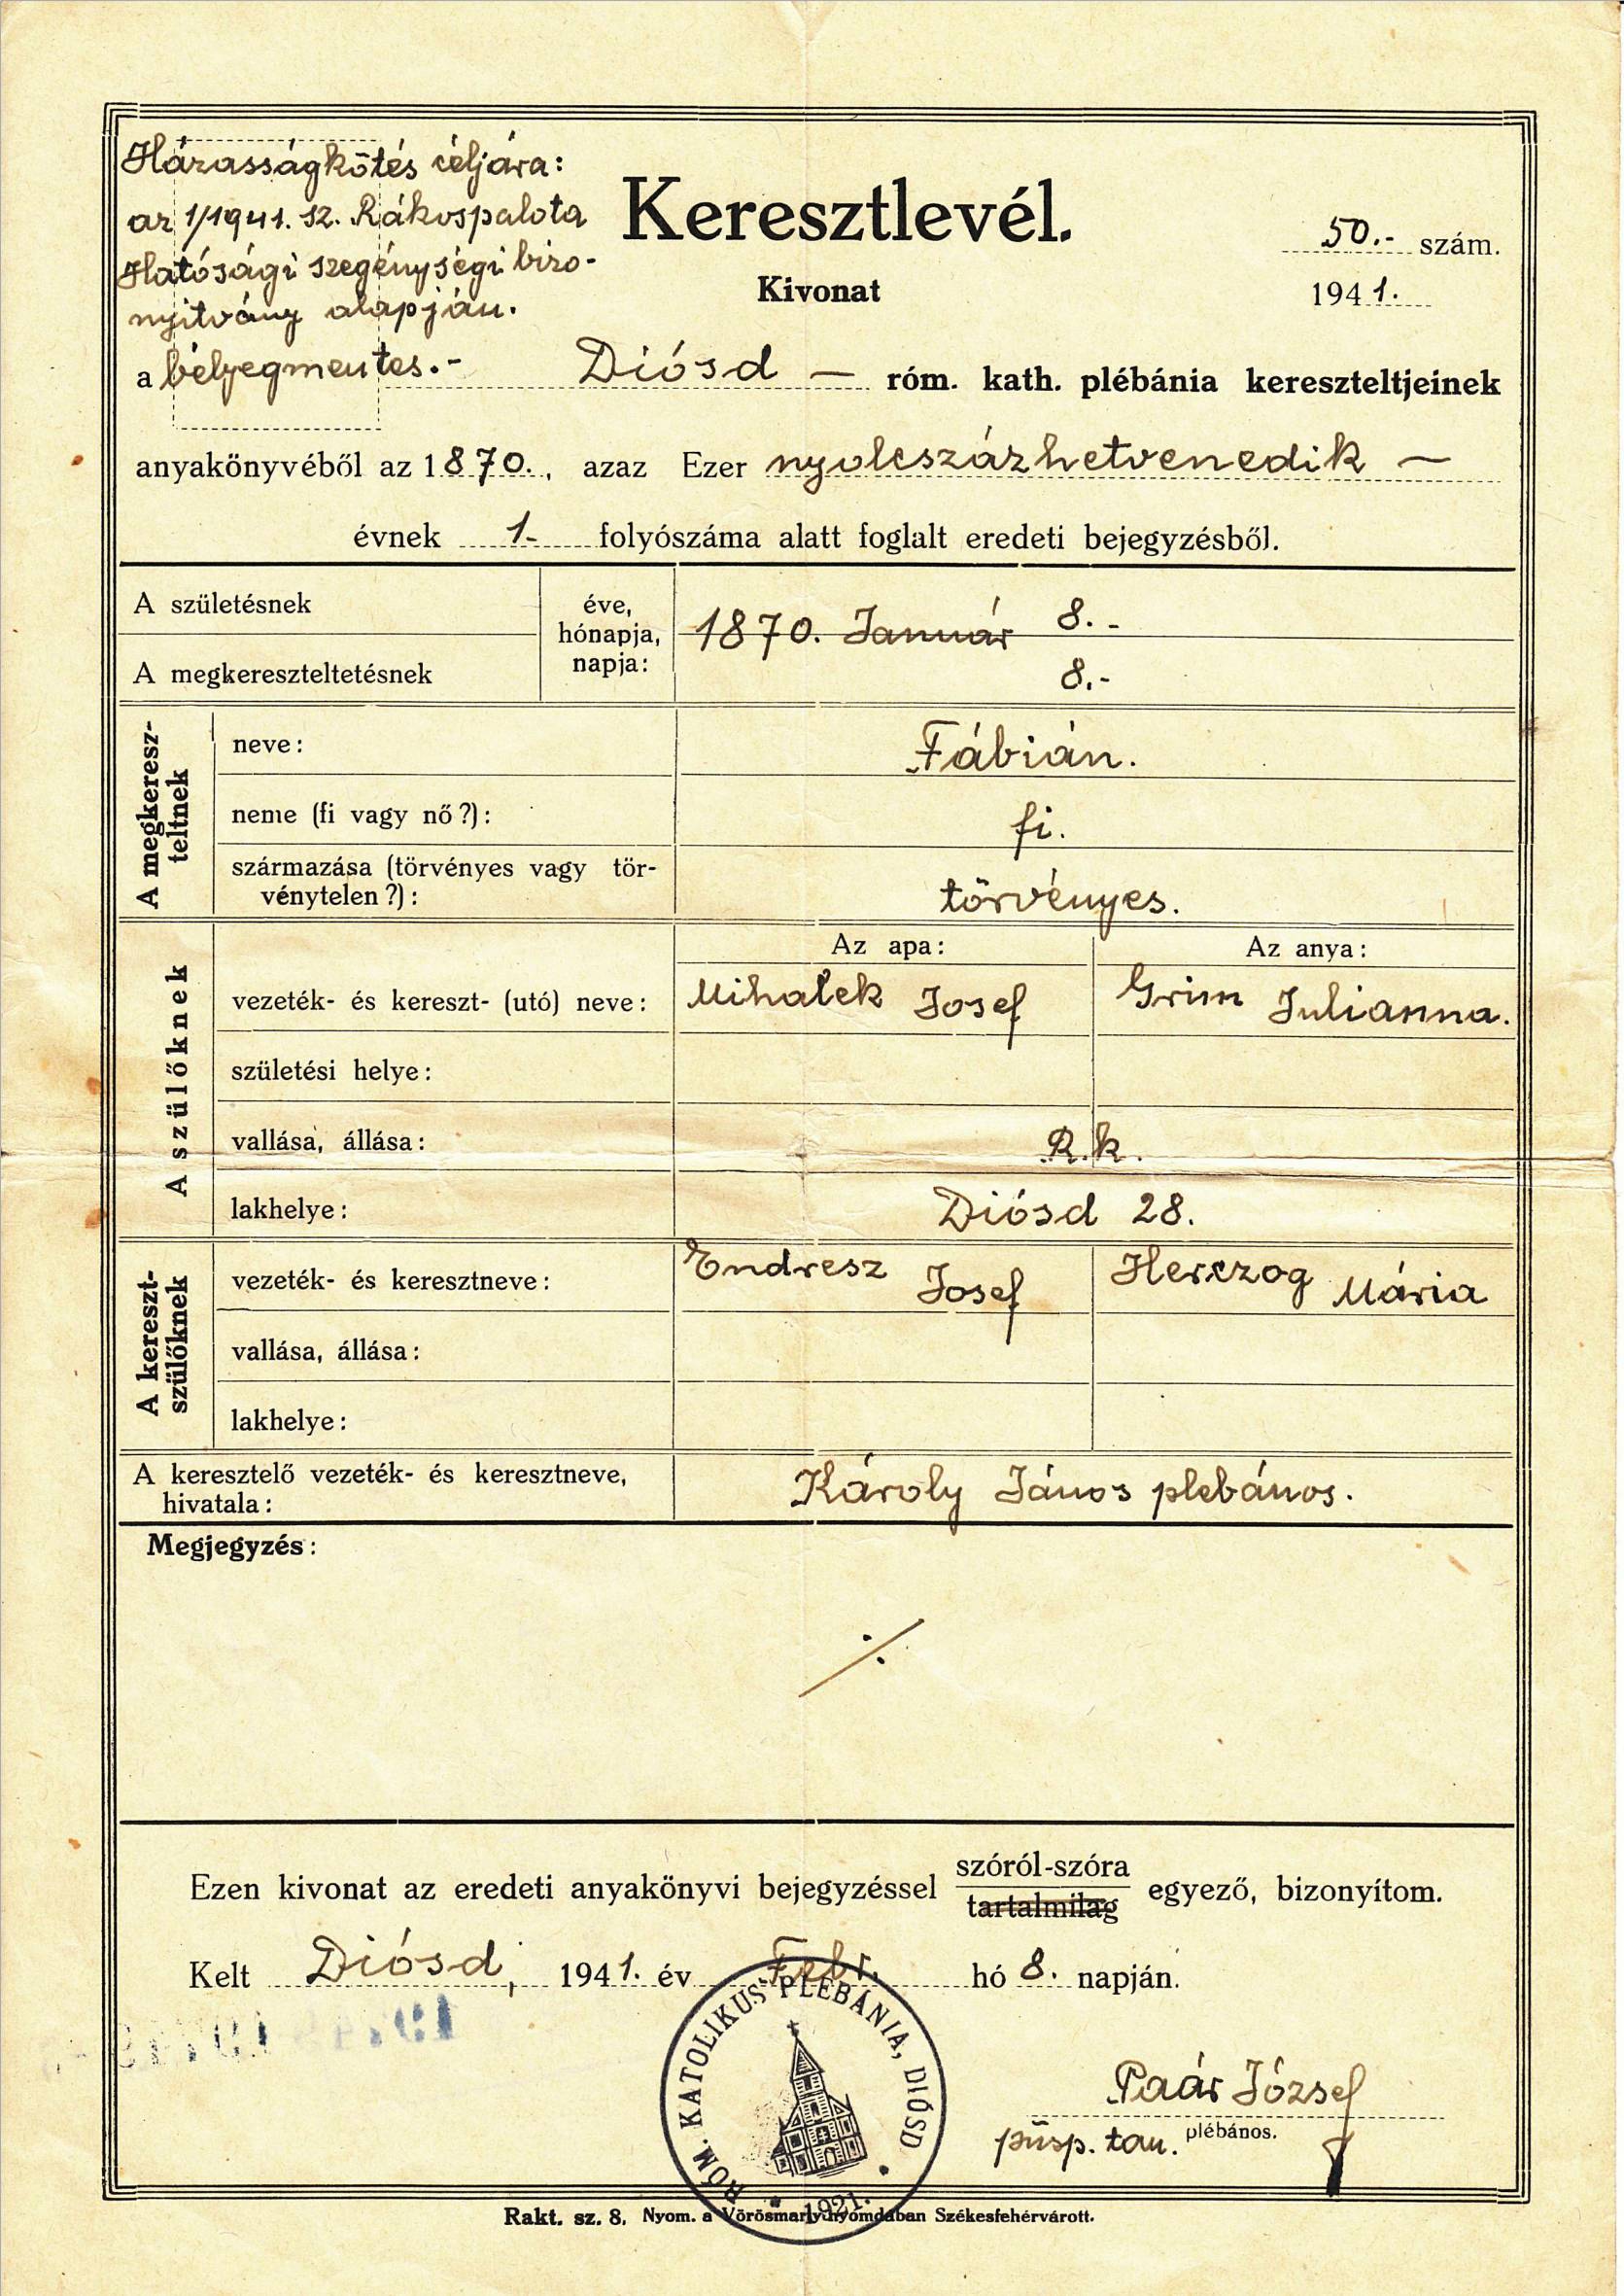 Házasságkötés céljára:
az 1/1941. sz. Rákospalota
Hatósági szegénységi bizo-
nyitvány alapján.
bélyegmentes.-
Keresztlevél.
50.- szám.
Kivonat
1941.
a Diósd — róm. kath. plébánia kereszteltjeinek
anyakönyvéből az 1870., azaz Ezer nyolcszázhetvenedik —
évnek 1.- folyószáma alatt foglalt eredeti bejegyzésből.
A születésnek
éve, hónapja, napja:
1870. Január 8.-
A megkereszteltetésnek
8.-
A megkeresz-
teltnek
neve: Fábián.
neme (fi vagy nő?): fi.
származása (törvényes vagy tör-
vénytelen?): törvényes.
A szülőknek
Az apa: Az anya:
vezeték- és kereszt- (utó) neve: Mihalek Josef Grim Julianna.
születési helye:
vallása, állása: R.k.
lakhelye: Diósd 28.
A kereszt-
szülőknek
vezeték- és keresztneve: Endresz Josef Herczog Mária
vallása, állása:
lakhelye:
A keresztelő vezeték- és keresztneve,
hivatala: Károly János plebános.
Megjegyzés:
·/·
Ezen kivonat az eredeti anyakönyvi bejegyzéssel szóról-szóra
tartalmilag egyező, bizonyítom.
Kelt Diósd, 1941. év Febr. hó 8. napján.
RÓM. KATOLIKUS PLÉBÁNIA, DIÓSD
1921.
Paár József
püsp. tan. plébános.
Rakt. sz. 8. Nyom. a Vörösmarty-nyomdában Székesfehérvárott.